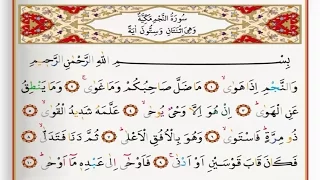 سُورَةُ النَّجْمِ مَكِّيَّةٌ
وَهِيَ اثْنَتَانِ وَسِتُّونَ اٰيَةً
بِسْمِ اللهِ الرَّحْمٰنِ الرَّحِيمِ
وَالنَّجْمِ اِذَا هَوٰىۙ ﴿١﴾ مَا ضَلَّ صَاحِبُكُمْ وَمَا غَوٰىۚ ﴿٢﴾ وَمَا يَنْطِقُ
عَنِ الْهَوٰىۜ ﴿٣﴾ اِنْ هُوَ اِلَّا وَحْيٌ يُوحٰىۙ ﴿٤﴾ عَلَّمَهُ شَدِيدُ الْقُوٰىۙ ﴿٥﴾
ذُو مِرَّةٍۜ فَاسْتَوٰىۙ ﴿٦﴾ وَهُوَ بِالْاُفُقِ الْاَعْلٰىۜ ﴿٧﴾ ثُمَّ دَنَا فَتَدَلّٰىۙ ﴿٨﴾
فَكَانَ قَابَ قَوْسَيْنِ اَوْ اَدْنٰىۚ ﴿٩﴾ فَاَوْحٰٓى اِلٰى عَبْدِهِ مَٓا اَوْحٰىۜ ﴿١٠﴾